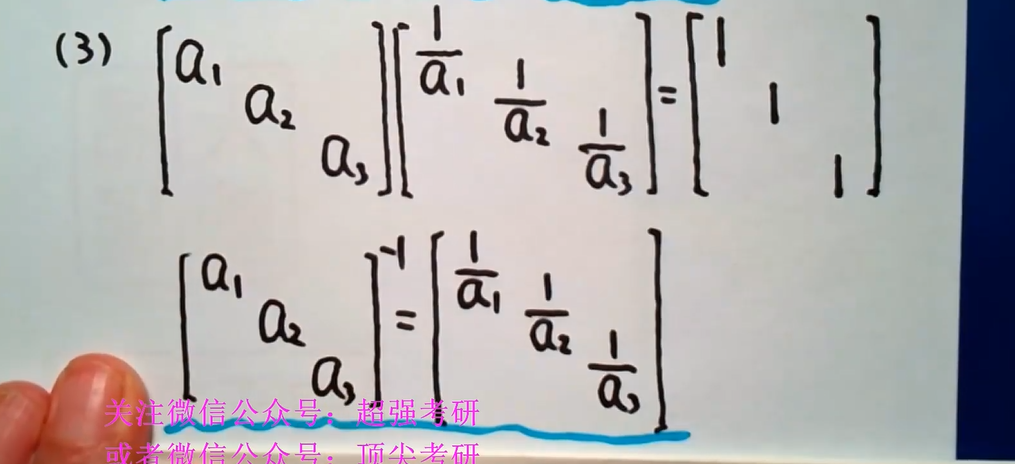 (3) [a₁ a₂ a₃][1/a₁ 1/a₂ 1/a₃]=[1 1 1]
[a₁ a₂ a₃]⁻¹=[1/a₁ 1/a₂ 1/a₃]
关注微信公众号：超强考研
或者微信公众号：顶尖考研